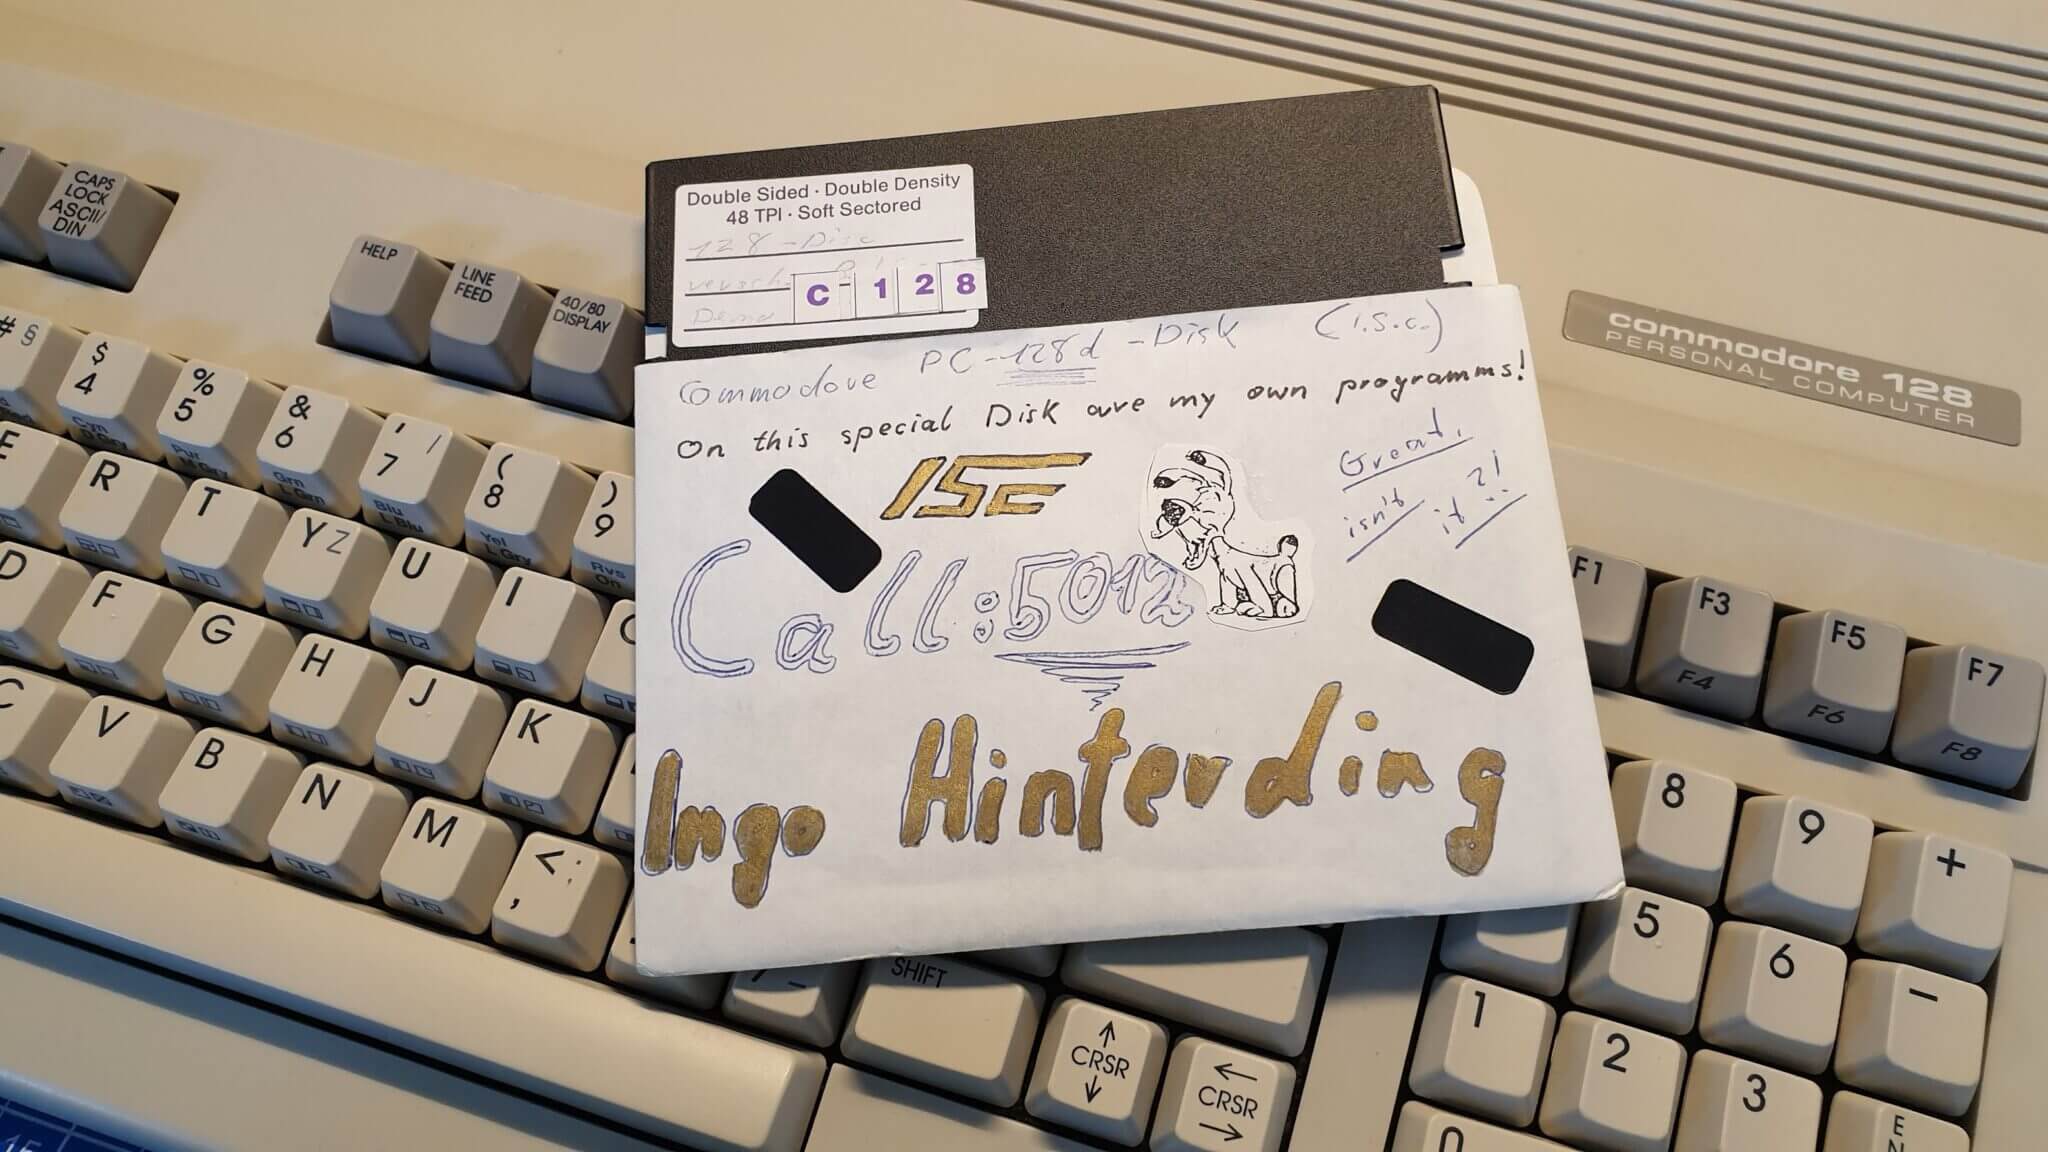 CAPS
LOCK
ASCII/
DIN
HELP
LINE
FEED
40/80
DISPLAY
Double Sided · Double Density
48 TPI · Soft Sectored
128-Disc
versch.
Demo
C 128
Commodore PC-128d-Disk (I.S.C.)
On this special Disk are my own programms!
ISC
Great,
isn't
it ?!
Call: 5012
Ingo Hinterding
commodore 128
PERSONAL COMPUTER
# §
$
4
%
5
&
6
' /
7
(
8
)
9
Cyn
D Gry
Pur
M Gry
Grn
L Grn
Blu
L Blu
Yel
L Gry
Rvs
On
E
R
T
Y Z
U
I
D
F
G
H
J
K
C
V
B
N
M
< ;
,
SHIFT
↑
CRSR
↓
←
CRSR
→
F1
F3
F4
F5
F6
F7
F8
8
9
+
5
6
−
1
2
3
0
E
N
15